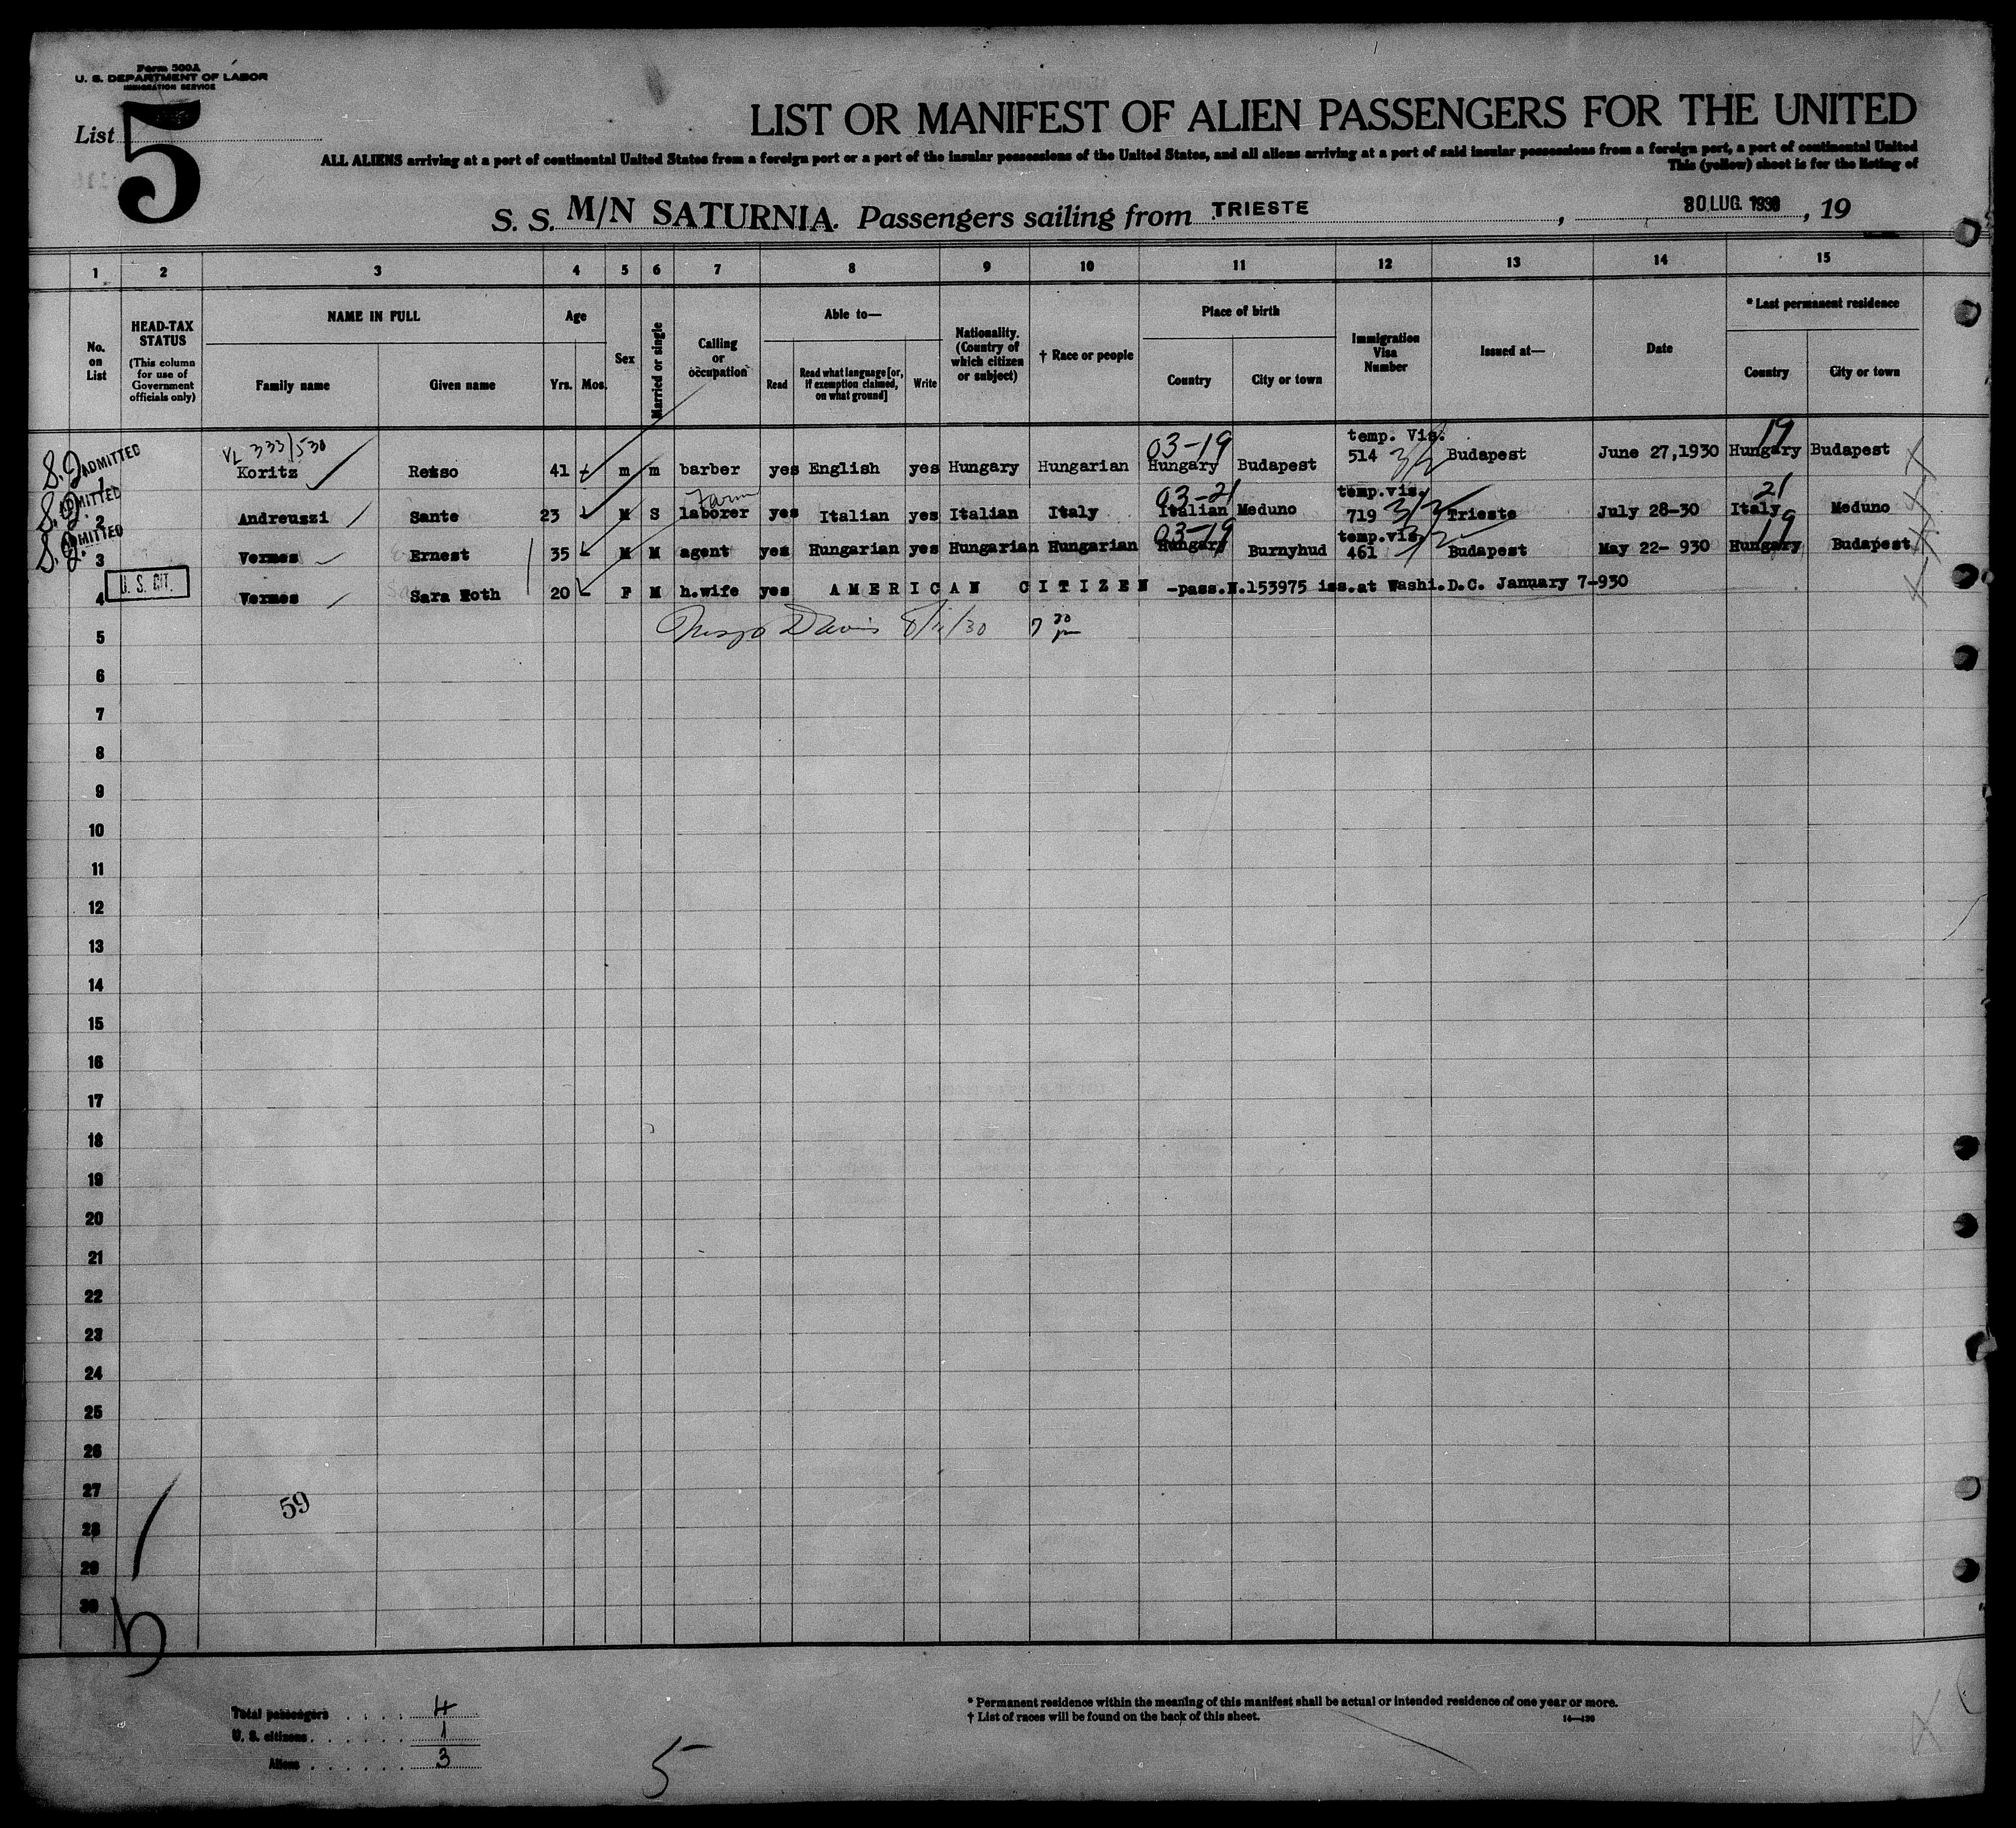 Form 500A
U. S. DEPARTMENT OF LABOR
IMMIGRATION SERVICE
List 5
LIST OR MANIFEST OF ALIEN PASSENGERS FOR THE UNITED
ALL ALIENS arriving at a port of continental United States from a foreign port or a port of the insular possessions of the United States, and all aliens arriving at a port of said insular possessions from a foreign port, a port of continental United
This (yellow) sheet is for the listing of
S. S. M/N SATURNIA. Passengers sailing from TRIESTE, 30 LUG. 1930, 19
1 2 3 4 5 6 7 8 9 10 11 12 13 14 15
No. on List
HEAD-TAX STATUS
(This column for use of Government officials only)
NAME IN FULL
Family name Given name
Age
Yrs. Mos.
Sex
Married or single
Calling or occupation
Able to—
Read Read what language [or, if exemption claimed, on what ground] Write
Nationality. (Country of which citizen or subject)
† Race or people
Place of birth
Country City or town
Immigration Visa Number
Issued at—
Date
* Last permanent residence
Country City or town
VL 333/530 03-19 temp. Vis. 19
ADMITTED 1 Koritz Resso 41 m m barber yes English yes Hungary Hungarian Hungary Budapest 514 Budapest June 27,1930 Hungary Budapest
Farm 03-21 temp.vis. 21
ADMITTED 2 Andreuszi Sante 23 M S laborer yes Italian yes Italian Italy Italian Meduno 719 Trieste July 28-30 Italy Meduno
03-19 temp.vis. 19
ADMITTED 3 Vermes Ernest 35 M M agent yes Hungarian yes Hungarian Hungarian Hungary Burnyhud 461 Budapest May 22- 930 Hungary Budapest
4 U. S. CIT. Vermes Sara Roth 20 F M h.wife yes AMERICAN CITIZEN -pass.N.153975 iss.at Washi.D.C. January 7-930
5 Davis 8/11/30 7 30 pm
6
7
8
9
10
11
12
13
14
15
16
17
18
19
20
21
22
23
24
25
26
27
59
28
29
30
Total passengers . . . . 4
U. S. citizens . . . . . . 1
Aliens . . . . . . 3
5
* Permanent residence within the meaning of this manifest shall be actual or intended residence of one year or more.
† List of races will be found on the back of this sheet.